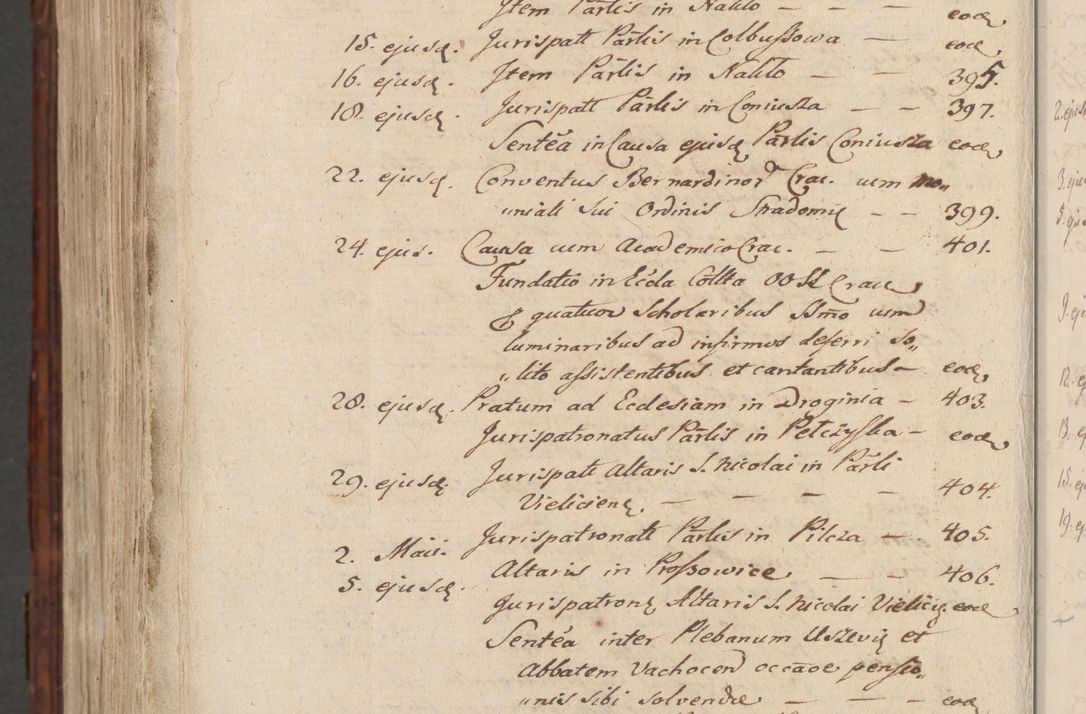 Item Partis in Naklo — — — eod.
15. ejusq. Jurispatt Partis in Colbussowa — eod.
16. ejusq. Item Partis in Naklo — — 395.
18. ejusq. Jurispatt Partis in Coniusza — — 397.
Sentẽa in Causa ejusq Partis Coniusza eod.
22. ejusq. Conventus Bernardinor Crac. cum mo„
„niali sui Ordinis Stradomię — — 399.
24. ejus. Causa cum Academico Crac. — — 401.
Fundatio in Eccla Collta OO SS Crac.
quatuor Scholaribus SSmo cum
luminaribus ad infirmos deferri so„
„lito assistentibus et cantantibus — eod.
28. ejusq. Pratum ad Ecclesiam in Droginia — 403.
Jurispatronatus Partis in Pelczyska — eod.
29. ejusq. Jurispatt Altaris S. Nicolai in Parli
Vielicienę. — — — — 404.
2. Maii. Jurispatronatt Partis in Pilcza — 405.
5. ejusq. Altaris in Prossowice — — 406.
Jurispatronę Altaris S. Nicolai Vielicię eod
Sentẽa inter Plebanum Uszevię et
Abbatem Vachocen occãoe pensio„
„nis sibi solvendæ — — — eod